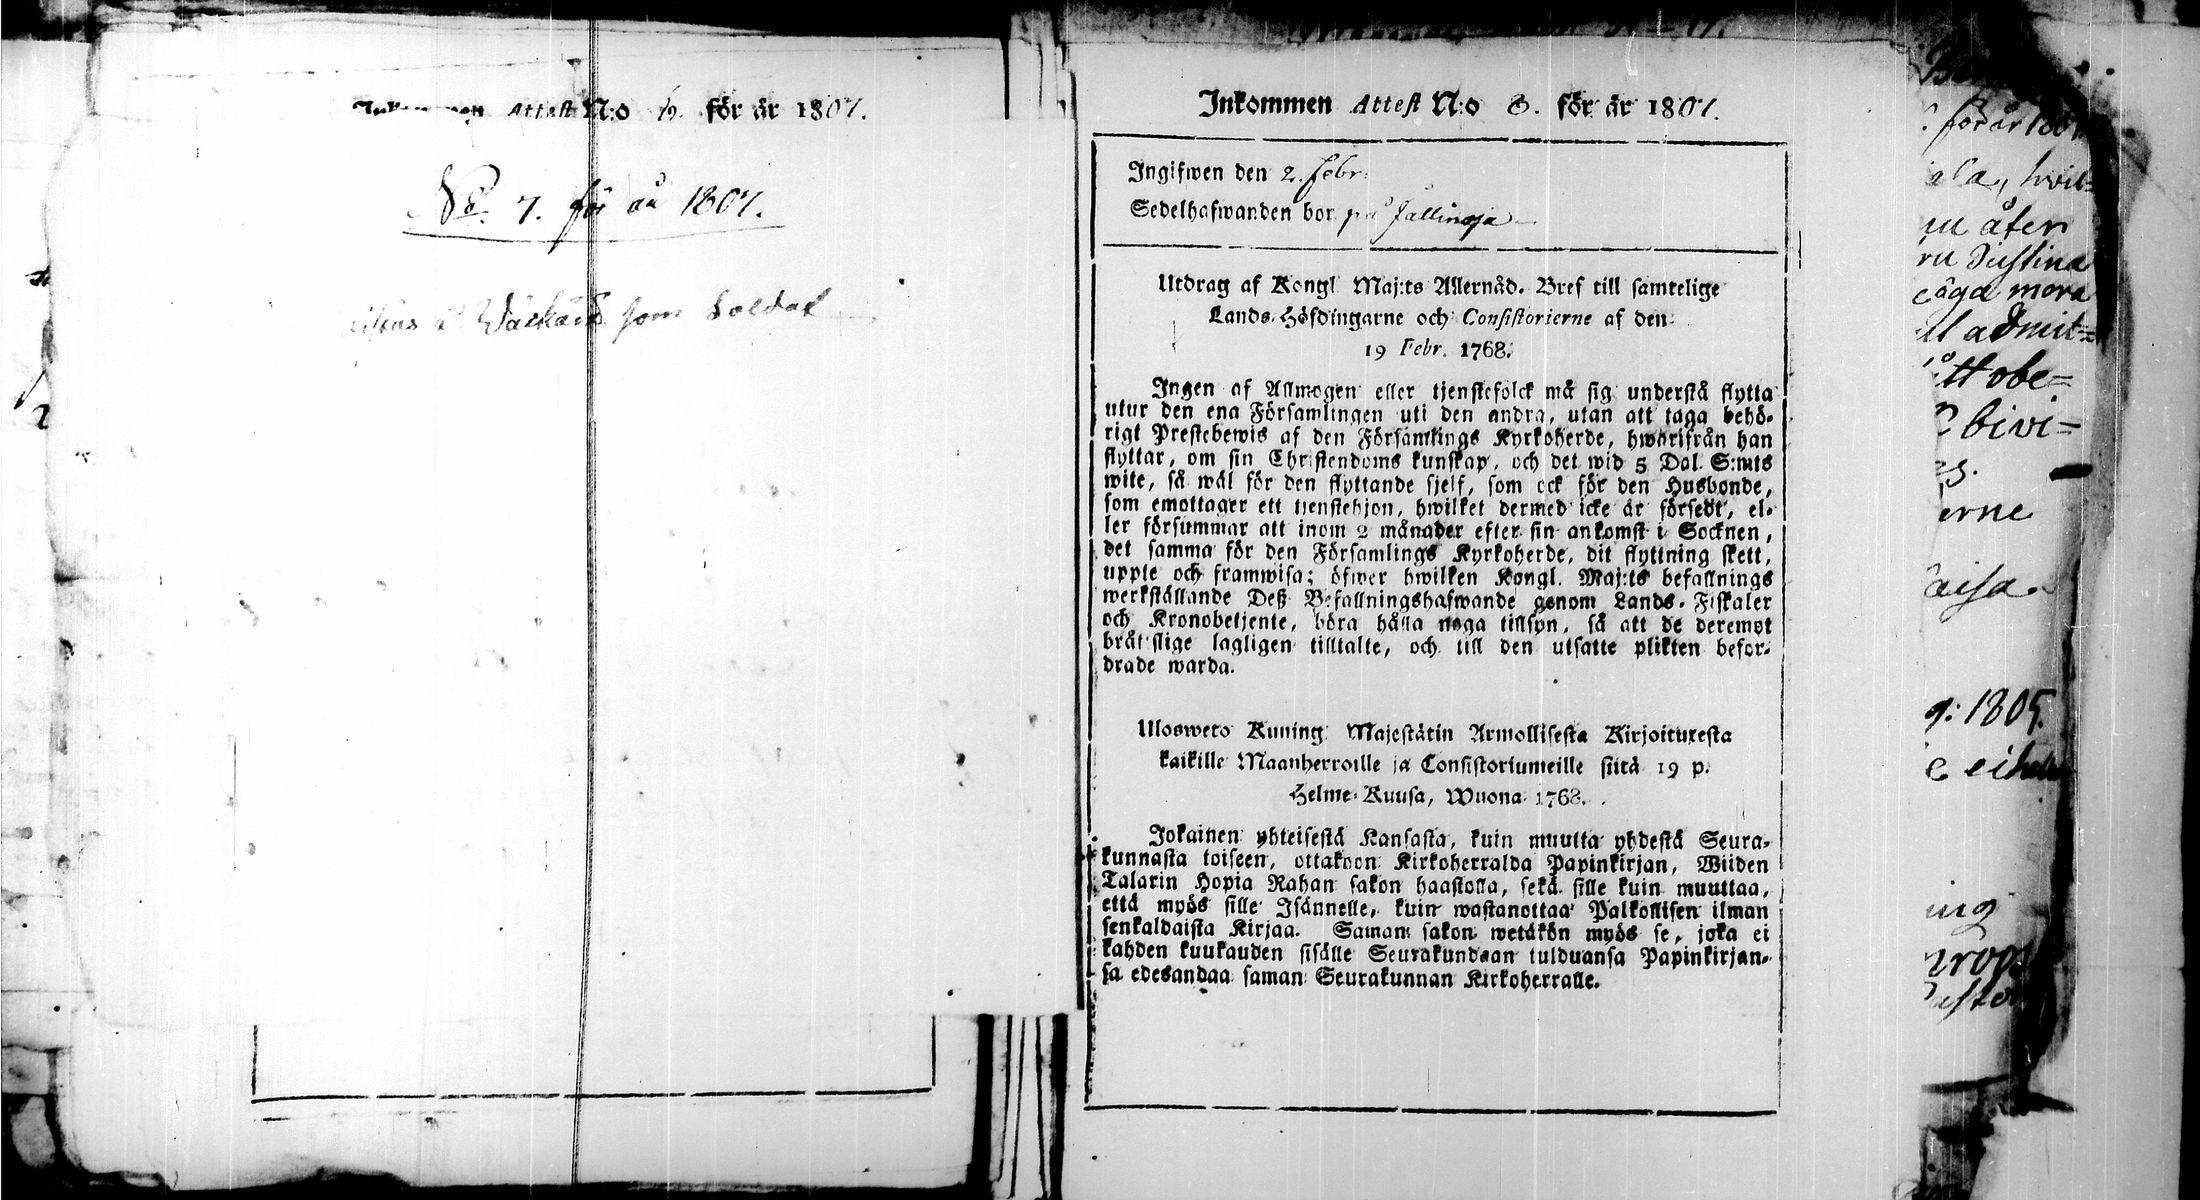 Inkommen Attest N:o för år 1807.
No. 7. för år 1807.
som Soldat
Inkommen Attest N:o 8. för år 1807.
Ingifwen den 2. Febr:
Sedelhafwanden bor på
Utdrag af Kongl Maj:ts Allernåd. Bref till samtelige
Lands-Höfdingarne och Consistorierne af den
19 Febr. 1768.
Ingen af Allmogen eller tjenstefolck må sig understå flytta
utur den ena Församlingen uti den andra, utan att taga behö-
rigt Prestebewis af den Församlings Kyrkoherde, hwarifrån han
flyttar, om sin Christendoms kunskap, och det wid 5 Dal. S:mts
wite, så wäl för den flyttande sjelf, som ock för den Husbonde,
som emottager ett tjenstehjon, hwilket dermed icke är försedt, el-
ler försummar att inom 2 månader efter sin ankomst i Socknen,
det samma för den Församlings Kyrkoherde, dit flyttning skett,
uppte och framwisa; öfwer hwilken Kongl. Maj:ts befallnings
werkställande Deß Befallningshafwande genom Lands-Fiskaler
och Kronobetjente, böra hålla noga tillsyn, så att de deremot
brätslige lagligen tilltalte, och till den utsatte plikten befor-
drade warda.
Ulosweto Kuning Majestätin Armollisesta Kirjoituxesta
kaikille Maanherroille ja Consistoriumeille siitä 19 p.
Helme-Kuusa, Wuona 1768.
Jokainen yhteisestä Kansasta, kuin muutta yhdestä Seura-
kunnasta toiseen, ottakoon Kirkoherralda Papinkirjan, Wiiden
Talarin Hopia Rahan sakon haastolla, sekä sille kuin muuttaa,
että myös sille Isännelle, kuin wastanottaa Palkollisen ilman
senkaldaista Kirjaa. Saman sakon wetäkön myös se, joka ei
kahden kuukauden sisälle Seurakundaan tulduansa Papinkirjan-
sa edesandaa saman Seurakunnan Kirkoherralle.
för år 180
åter
äga mera
admit=
tt obe=
bivi=
erne
1805.